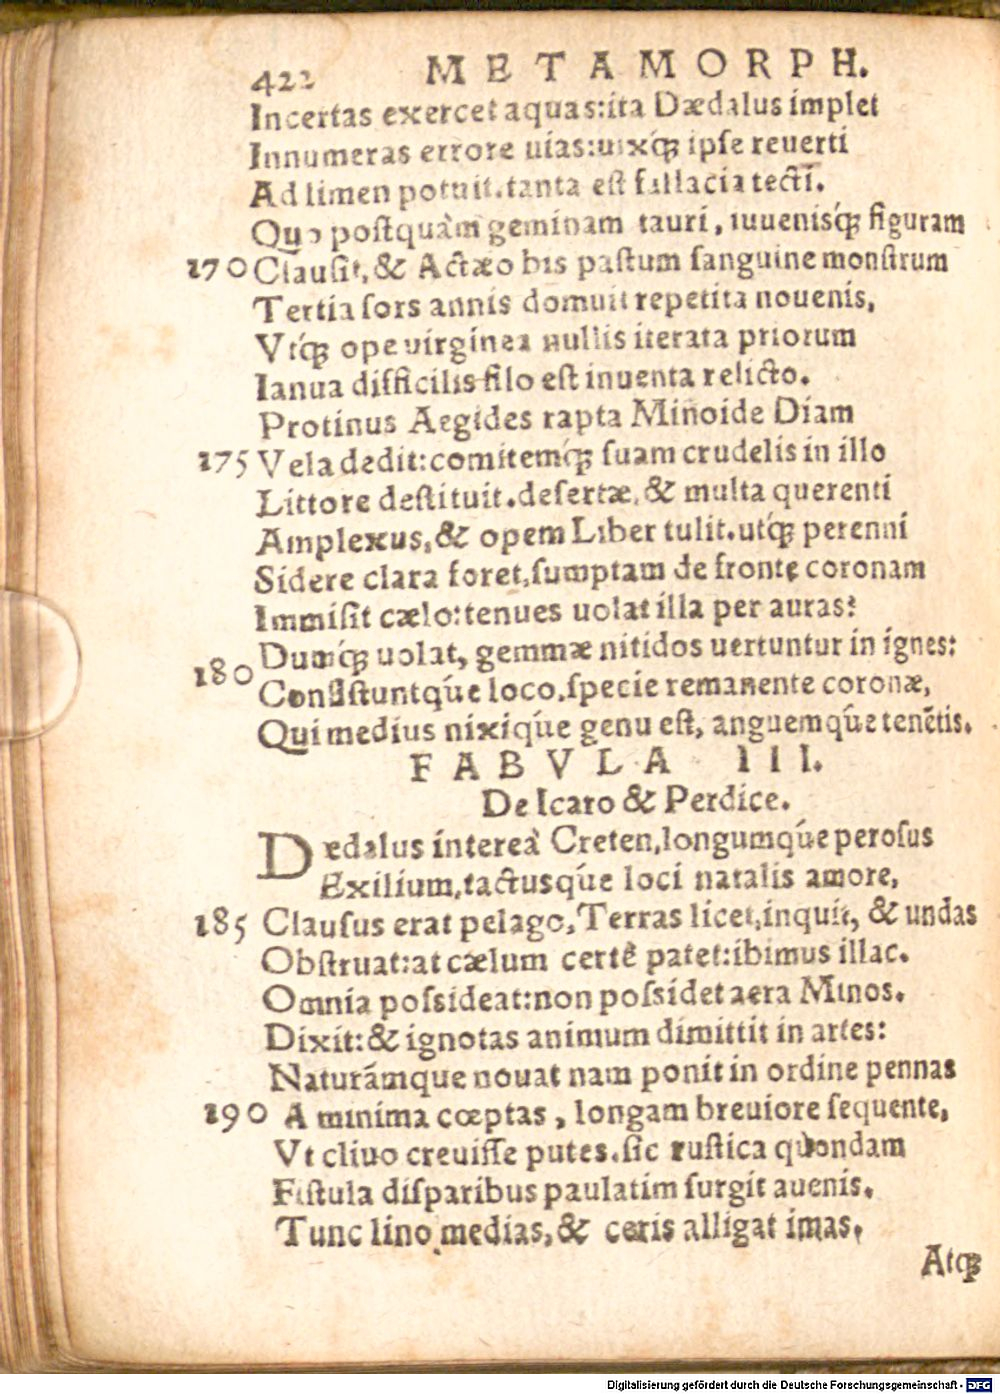 422 METAMORPH.
Incertas exercet aquas:ita Dædalus implet
Innumeras errore uias:uixq́; ipſe reuerti
Ad limen potuit.tanta eſt fallacia tectī.
Quo poſtquàm geminam tauri, iuuenisq́; figuram
170 Clauſit, & Actæo bis paſtum ſanguine monſtrum
Tertia ſors annis domuit repetita nouenis,
Vtq́; ope uirginea nullis iterata priorum
Ianua difficilis filo eſt inuenta relicto.
Protinus Aegides rapta Minoide Diam
175 Vela dedit:comitemq́; ſuam crudelis in illo
Littore deſtituit.deſertæ, & multa querenti
Amplexus, & opem Liber tulit.utq́; perenni
Sidere clara foret,ſumptam de fronte coronam
Immiſit cælo:tenues uolat illa per auras:
Dumq́; uolat, gemmæ nitidos uertuntur in ignes:
180 Conſiſtuntq́ue loco.ſpecie remanente coronæ,
Qui medius nixiq́ue genu eſt, anguemq́ue tenētis.
FABVLA III.
De Icaro & Perdice.
Dædalus intereà Creten,longumq́ue peroſus
Exilium,tactusq́ue loci natalis amore,
185 Clauſus erat pelago,Terras licet,inquit, & undas
Obſtruat:at cælum certè patet:ibimus illac.
Omnia poſsideat:non poſsidet aera Minos.
Dixit:& ignotas animum dimittit in artes:
Naturámque nouat nam ponit in ordine pennas
190 A minima cœptas, longam breuiore ſequente,
Vt cliuo creuiſſe putes.ſic ruſtica quòndam
Fiſtula diſparibus paulatim ſurgit auenis.
Tunc lino medias, & ceris alligat imas,
Atq́;
Digitalisierung gefördert durch die Deutsche Forschungsgemeinschaft - DFG